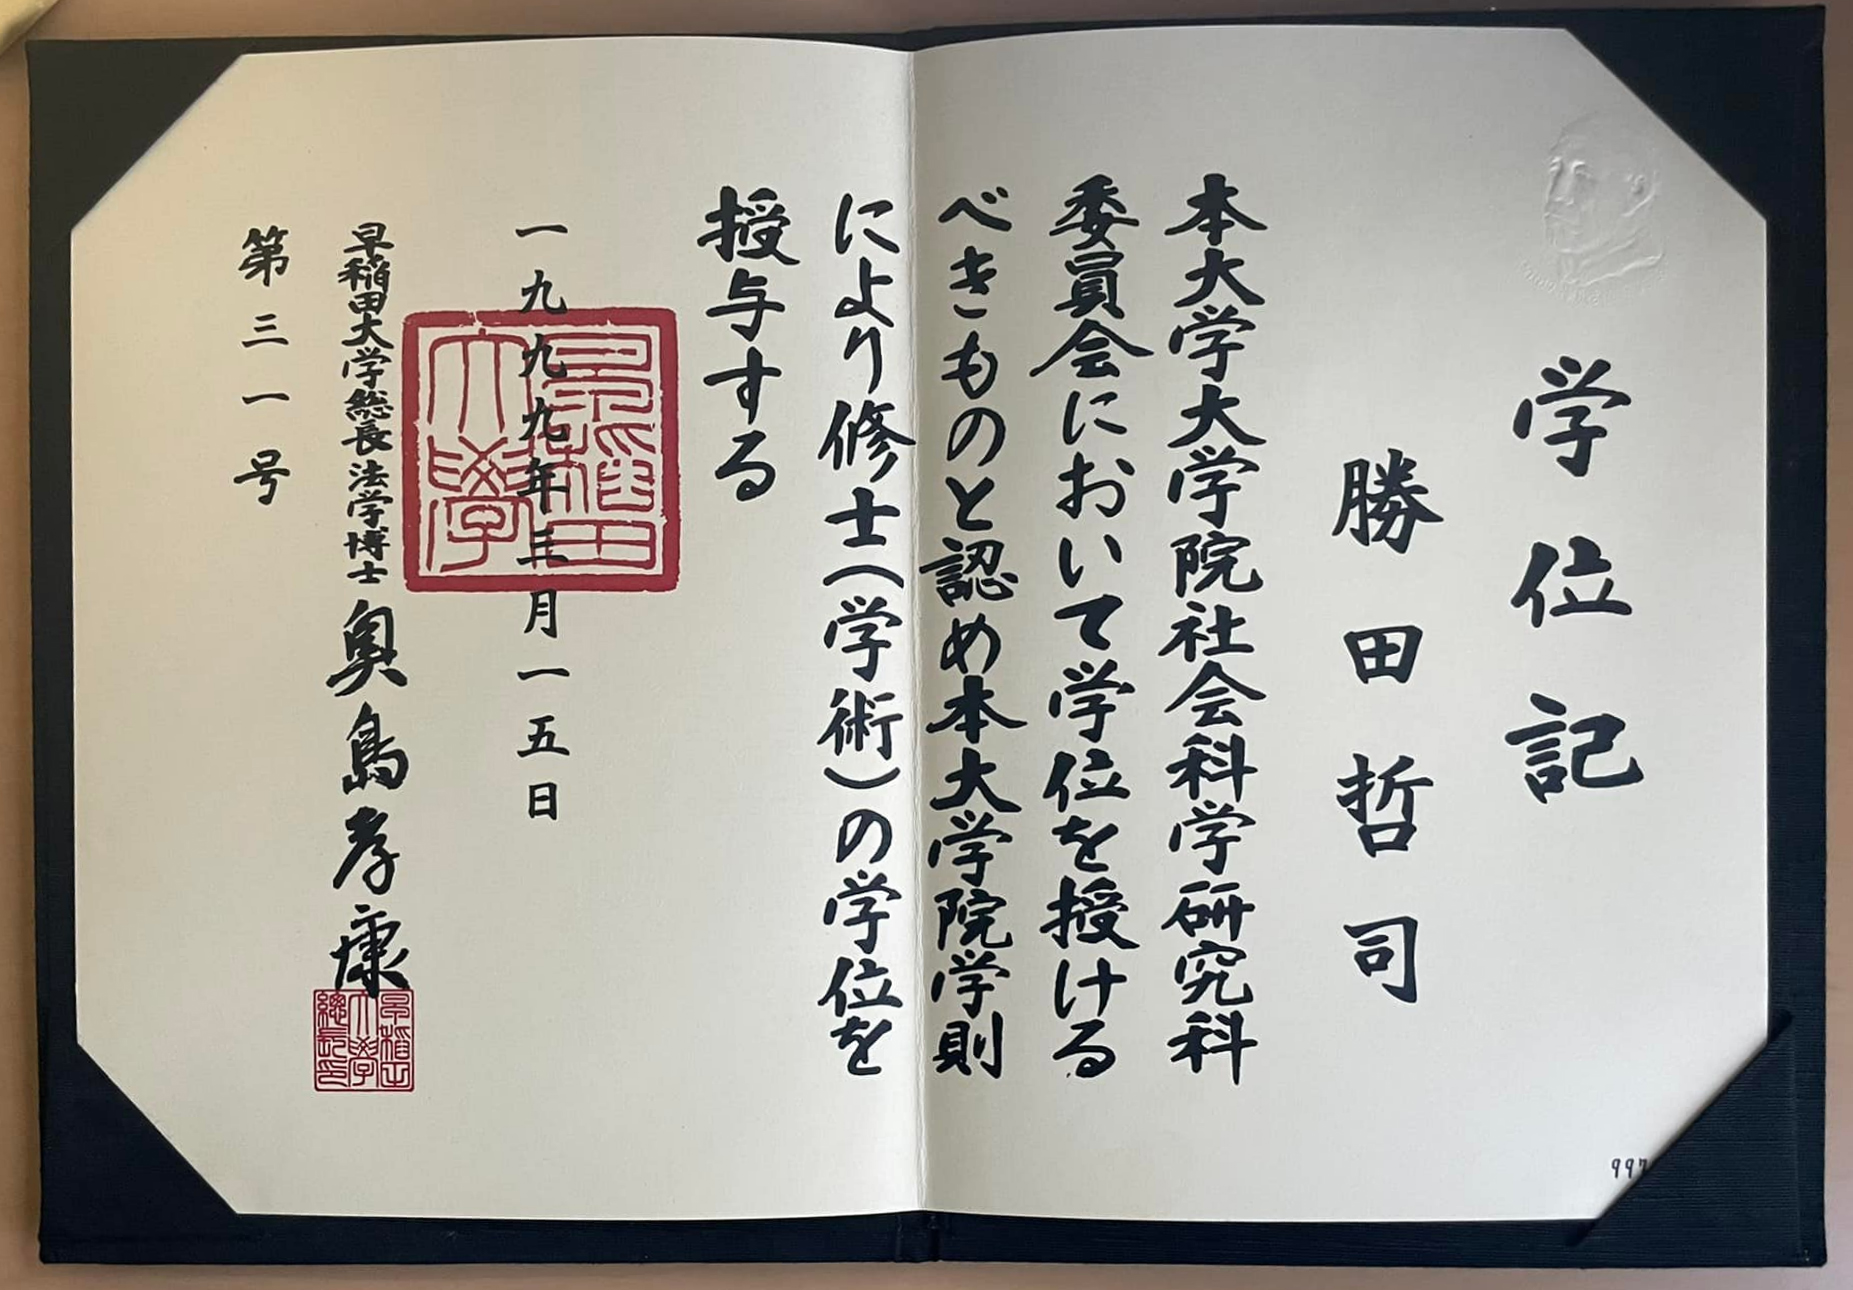 学位記
勝田哲司
本大学大学院社会科学研究科
委員会において学位を授ける
べきものと認め本大学院学則
により修士(学術)の学位を
授与する
一九九九年三月一五日
早稲田大学
早稲田大学総長 法学博士 奥島孝康
早稲田大学總長印
第三一号